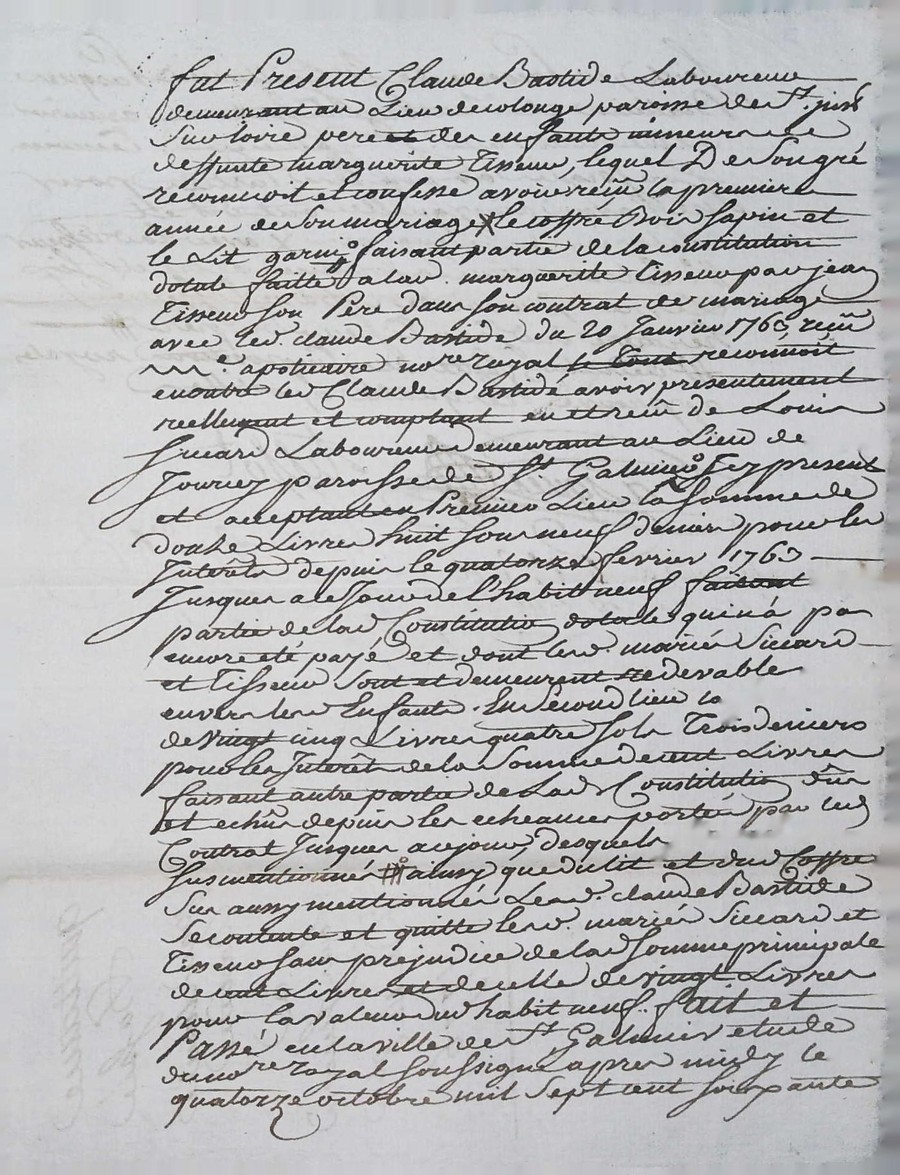 fut Present Claude Bastide Laboureur
demeurant au Lieu de colonge paroisse de St. just
Sur loire pere et des enfants mineurs de
deffunte marguerite Tisseur, lequel De Son gré
reconnoit et confesse avoir reçu la premiere
année de Son mariage le coffre Bois Sapin et
le Lit garny faisant partie de la constitution
dotale faitte a lad. marguerite Tisseur par jean
Tisseur Son Pere dans Son contrat de mariage
avec led. claude Bastide du 20 Janvier 1763 reçu
me. apoticaire nore royal le tout reconnoit
en outre led Claude Bastide avoir presentement
reellement et comptant eu et reçu de Louis
Siccard Laboureur demeurant au Lieu de
Jourcey paroisse de St. Galmier Icy present
et acceptant en Premier Lieu la Somme de
douze Livres huit Sous neuf deniers pour les
Interêts depuis le quatorze fevrier 1763
Jusques a ce Jour de l'habit neuf faisant
partie de lad Constitution dotale qui n'a pas
encore été payé et dont led. mariés Siccard
et Tisseur Sont et demeurent redevable
envers les Enfants. En Second lieu
de vingt cinq Livres quatre Sols Trois deniers
pour les Interêts de la Somme de cent Livres
faisant autre partie de Lad Constitution dûs
et echûs depuis les echeances portées par led
Contrat Jusques aujourd desquels
Susmentionnés ainsy que du lit et dud Coffre
Sus aussy mentionnés Led. claude Bastide
Se contente et quitte led. mariés Siccard et
Tisseur Sans prejudice de lad Somme principale
de cent Livres et de celle de vingt Livres
pour la valeur dud habit neuf. fait et
Passé en la ville de St. Galmier etude
du nore royal Soussigné apres midy le
quatorze octobre mil Sept cent Soixante